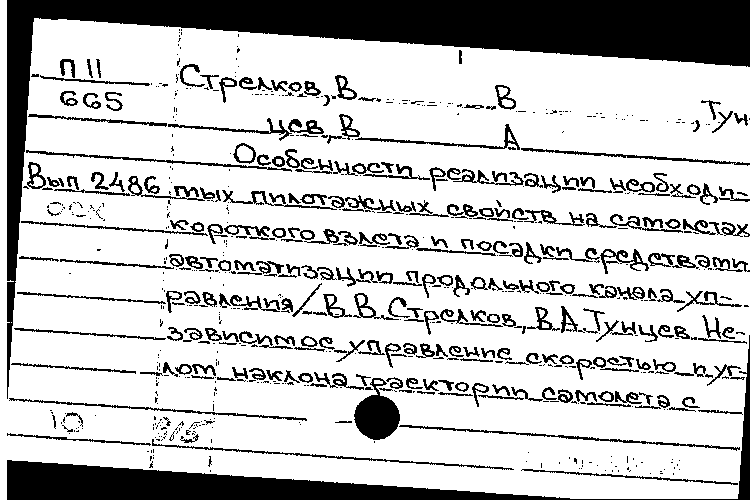 П 11
665
Стрелков, В В , Тун-
цев, В А
Особенности реализации необходи-
Вып. 2486 мых пилотажных свойств на самолетах
осх
короткого взлета и посадки средствами
автоматизации продольного канала уп-
равления / В.В. Стрелков, В.А. Тунцев. Не-
зависимое управление скоростью и уг-
лом наклона траектории самолета с
10 915